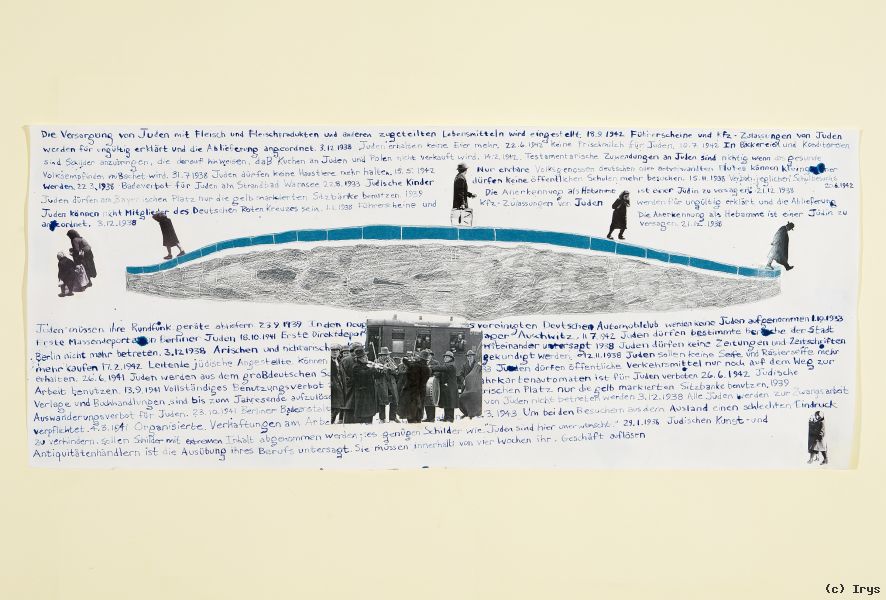 Die Versorgung von Juden mit Fleisch und Fleischprodukten und anderen zugeteilten Lebensmitteln wird eingestellt. 18.9.1942 Führerscheine und Kfz-Zulassungen von Juden
werden für ungültig erklärt und die Ablieferung angeordnet. 3.12.1938 Juden erhalten keine Eier mehr. 22.6.1942 Keine Frischmilch für Juden. 10.7.1942 In Bäckereien und Konditoreien
sind Schilder anzubringen, die darauf hinweisen, daß Kuchen an Juden und Polen nicht verkauft wird. 14.2.1942. Testamentarische Zuwendungen an Juden sind nichtig wenn gesunde
Volksempfinden mißachtet wird. 31.7.1938 Juden dürfen keine Haustiere mehr halten. 15.5.1942 Nur ehrbare Volksgenossen deutschen oder artverwandten Blutes können
werden. 22.3.1938 Badeverbot für Juden am Strandbad Wannsee 22.8.1933 Jüdische Kinder dürfen keine öffentlichen Schulen mehr besuchen. 15.11.1938 Verbot jeglichen Schulbesuchs 20.6.1942
Juden dürfen am Bayerischen Platz nur die gelb markierten Sitzbänke benutzen. 1939 Die Anerkennung als Hebamme ist einer Jüdin zu versagen. 21.12.1938
Juden können nicht Mitglieder des Deutschen Roten Kreuzes sein. 1.1.1938 Führerscheine und Kfz-Zulassungen von Juden werden für ungültig erklärt und die Ablieferung
angeordnet. 3.12.1938 Die Anerkennung als Hebamme ist einer Jüdin zu
versagen. 21.12.1938
Juden müssen ihre Rundfunk geräte abliefern 23.9.1939 In den neu vereinigten Deutschen Automobilclub werden keine Juden aufgenommen 1.10.1933
Erste Massendeportation Berliner Juden 18.10.1941 Erste Direktdepor Auschwitz. 11.7.1942 Juden dürfen bestimmte Bereiche der Stadt
Berlin nicht mehr betreten. 3.12.1938 Arischen und nichtarischen miteinander untersagt 1938 Juden dürfen keine Zeitungen und Zeitschriften
mehr kaufen 17.2.1942 Leitende jüdische Angestellte können gekündigt werden. 12.11.1938 Juden sollen keine Seife und Rasierseife mehr
erhalten. 26.6.1941 Juden werden aus dem großdeutschen Sch Juden dürfen öffentliche Verkehrsmittel nur noch auf dem Weg zur
Arbeit benutzen. 13.9.1941 Vollständiges Benutzungsverbot Fahrkartenautomaten ist für Juden verboten 26.6.1942 Jüdische
Verlage und Buchhandlungen sind bis zum Jahresende aufzulösen Platz nur die gelb markierten Sitzbänke benutzen. 1939
Auswanderungsverbot für Juden. 23.10.1941 Berliner von Juden nicht betreten werden 3.12.1938 Alle Juden werden zur Zwangsarbeit
verpflichtet. 4.3.1941 Organisierte Verhaftungen am Arbe 3.1943 Um bei den Besuchern aus dem Ausland einen schlechten Eindruck
zu verhindern, sollen Schilder mit extremem Inhalt abgenommen werden; es genügen Schilder wie "Juden sind hier unerwünscht." 29.1.1936 Jüdischen Kunst-und
Antiquitätenhändlern ist die Ausübung ihres Berufs untersagt. Sie müssen innerhalb von vier Wochen ihr Geschäft auflösen
(c) Irys